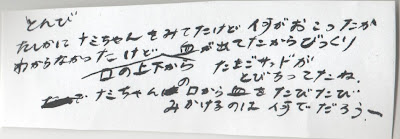 とんび
たしかにナミちゃんをみてたけど何がおこったか
わからなかったけど 血が出てたからびっくり
口の上下から たまごサッドが
とびちってたね.
ナミちゃんの口から血をたびたび
みかけるのは何でだろう一